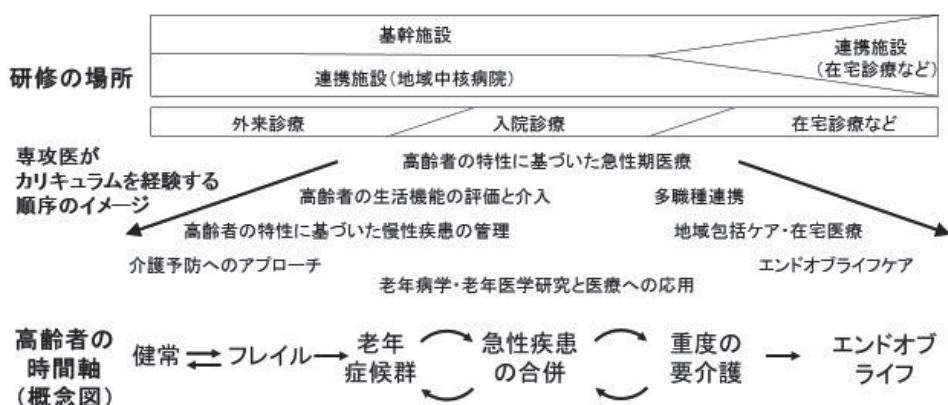 研修の場所
基幹施設
連携施設(地域中核病院)
連携施設
(在宅診療など)
外来診療
入院診療
在宅診療など
専攻医が
カリキュラムを経験する
順序のイメージ
高齢者の特性に基づいた急性期医療
高齢者の生活機能の評価と介入
多職種連携
高齢者の特性に基づいた慢性疾患の管理
地域包括ケア・在宅医療
介護予防へのアプローチ
エンドオブライフケア
老年病学・老年医学研究と医療への応用
高齢者の
時間軸
(概念図)
健常
フレイル
老年
症候群
急性疾患
の合併
重度の
要介護
エンドオブ
ライフ